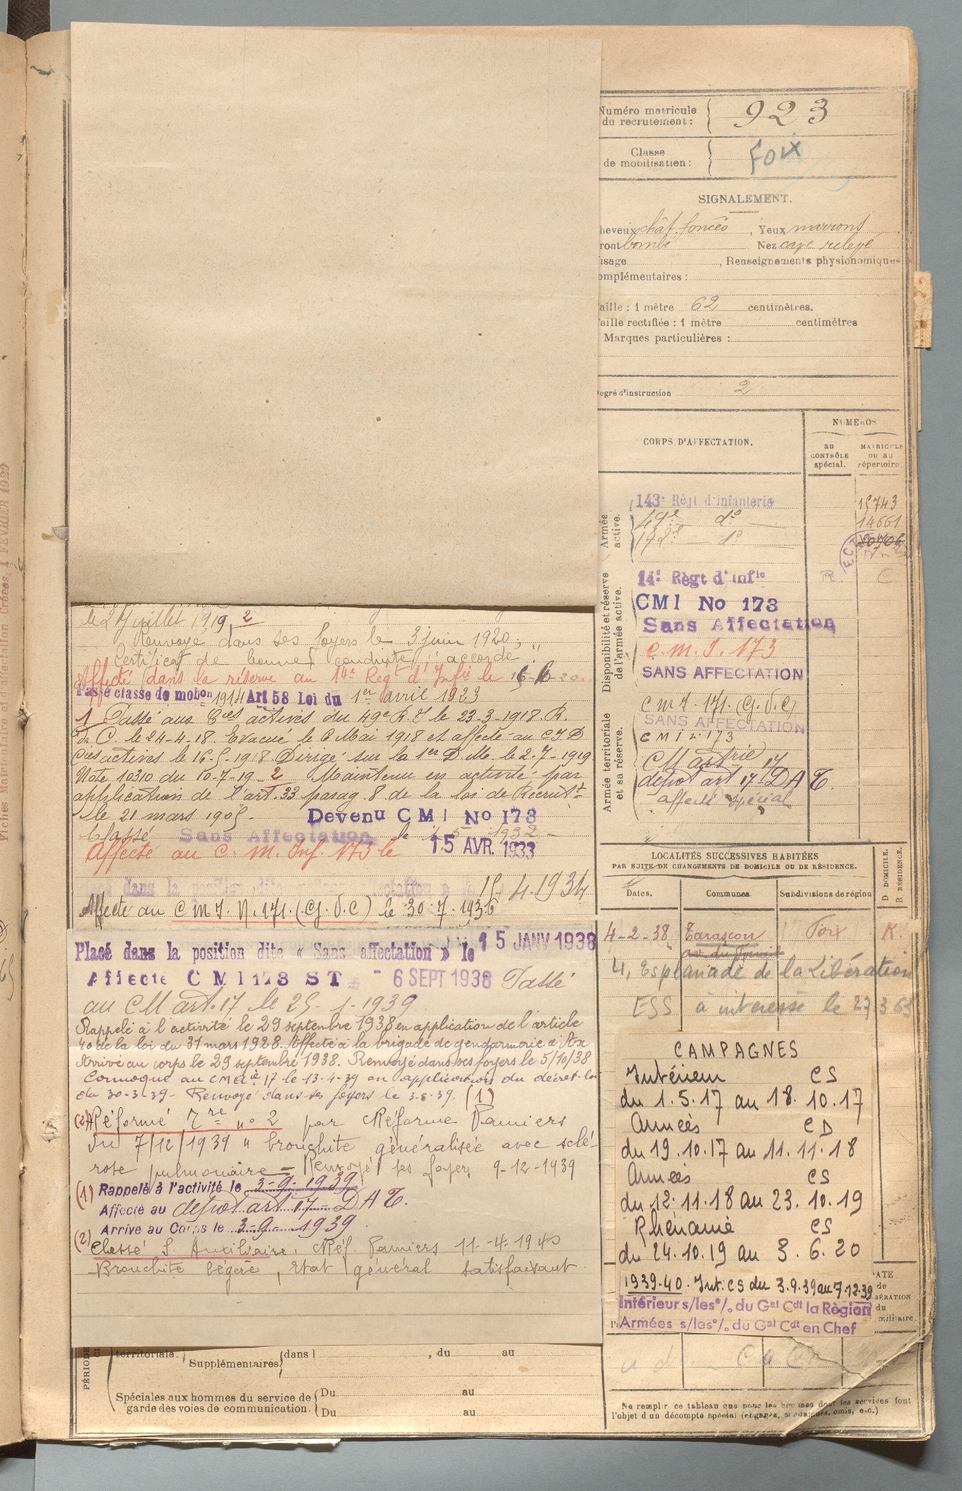 Numéro matricule
du recrutement :
923
Classe
de mobilisation :
Foix
SIGNALEMENT.
heveux chât. foncés , Yeux marrons
ront bombé Nez cave relevé
isage , Renseignements physionomiques
omplémentaires :
aille : 1 mètre 62 centimètres.
aille rectifiée : 1 mètre centimètres
Marques particulières :
egré d'instruction 2
NUMÉROS
CORPS D'AFFECTATION.
au
contrôle
spécial.
matricule
ou au
répertoire
Armée
active.
143e Régt d'infanterie 15743
49e do 14661
20706
Disponibilité et réserve
de l'armée active.
14e Régt d'Infie
CMI No 173
Sans Affectation
C.M.I. 173
SANS AFFECTATION
Armée territoriale
et sa réserve.
CMI. 171. (G.V.C)
SANS AFFECTATION
CMI n° 173
CM artrie 17
dépot art 17 D A T.
affecté spécial
LOCALITÉS SUCCESSIVES HABITÉES
PAR SUITE DE CHANGEMENTS DE DOMICILE OU DE RÉSIDENCE.
D. DOMICILE.
R. RÉSIDENCE.
Dates.
Communes.
Subdivisions de région
4-2-38 Tarascon Foix R.
4, Esplanade de la Libération
ESS a intéressé le 27.3.63
CAMPAGNES
Intérieur CS
du 1.5.17 au 18.10.17
Armées CD
du 19.10.17 au 11.11.18
Armées CS
du 12.11.18 au 23.10.19
Rhénanie CS
du 24.10.19 au 3.6.20
1939-40. Int. CS du 3.9.39 au 7.12.39
Intérieur s/les °/. du Gal Cdt la Région
Armées s/les °/. du Gal Cdt en Chef
Ne remplir ce tableau que pour les hommes dont les services font
l'objet d'un décompte spécial (engagés, omis, etc.)
le 27 juillet 1919 2
Renvoyé dans ses foyers le 3 juin 1920 ;
Certificat de bonne conduite "accordé"
Affecté dans la réserve au 14e Régt d'Infie le 16-6-20.
Passé classe de mobon 1914 Art 58 Loi du 1er avril 1923
1 Passé aux Cies actives du 49e R.I le 23-3-1918. R.
de C. le 24-4-18. Evacué le 6 Mai 1918 et affecté au C I D
Cies actives le 16-5-1918 Dirigé sur la 1re D.M. le 2-7-1919
Note 10310 du 10-7-19_ 2 Maintenu en activité par
application de l'art. 33 parag. 8 de la loi de Recruitt
le 21 mars 1905. Devenu CMI No 173
Classé Sans Affectation le 1932
Affecté au C. M. Inf. 173 le 15 AVR. 1933
dans la position dite 15.4.1934
Affecté au C M I. N. 171. (G.V.C) le 30-7-1936
Placé dans la position dite « Sans affectation » le 15 JANV 1938
Affecté CMI 173 ST - 6 SEPT 1938 Passé
au CM art. 17 le 25-1-1939
Rappelé à l'activité le 29 septembre 1938 en application de l'article
40 de la loi du 31 mars 1928. Affecté à la brigade de gendarmerie d'Ax
Arrivé au corps le 29 septembre 1938. Renvoyé dans ses foyers le 5/10/38
Convoqué au CM 17 le 13-4-39 en application du décret-loi
du 20-3-39- Renvoyé dans ses foyers le 3.8.39. (1)
(2) Réformé Tre n° 2 par C Réforme Pamiers
du 7/12/1939 "bronchite généralisée avec sclé-
rose pulmonaire = Renvoyé ses foyers 9-12-1939
(1) Rappelé à l'activité le 3-9-1939
Affecté au dépot art 17 D A T.
Arrivé au Corps le 3-9-1939.
(2) Classé S Auxiliaire. C Réf. Pamiers 11-4-1940
Bronchite légère , état général satisfaisant
territoriale. Supplémentaires dans l , du au
Spéciales aux hommes du service de
garde des voies de communication.
Du au
Du au